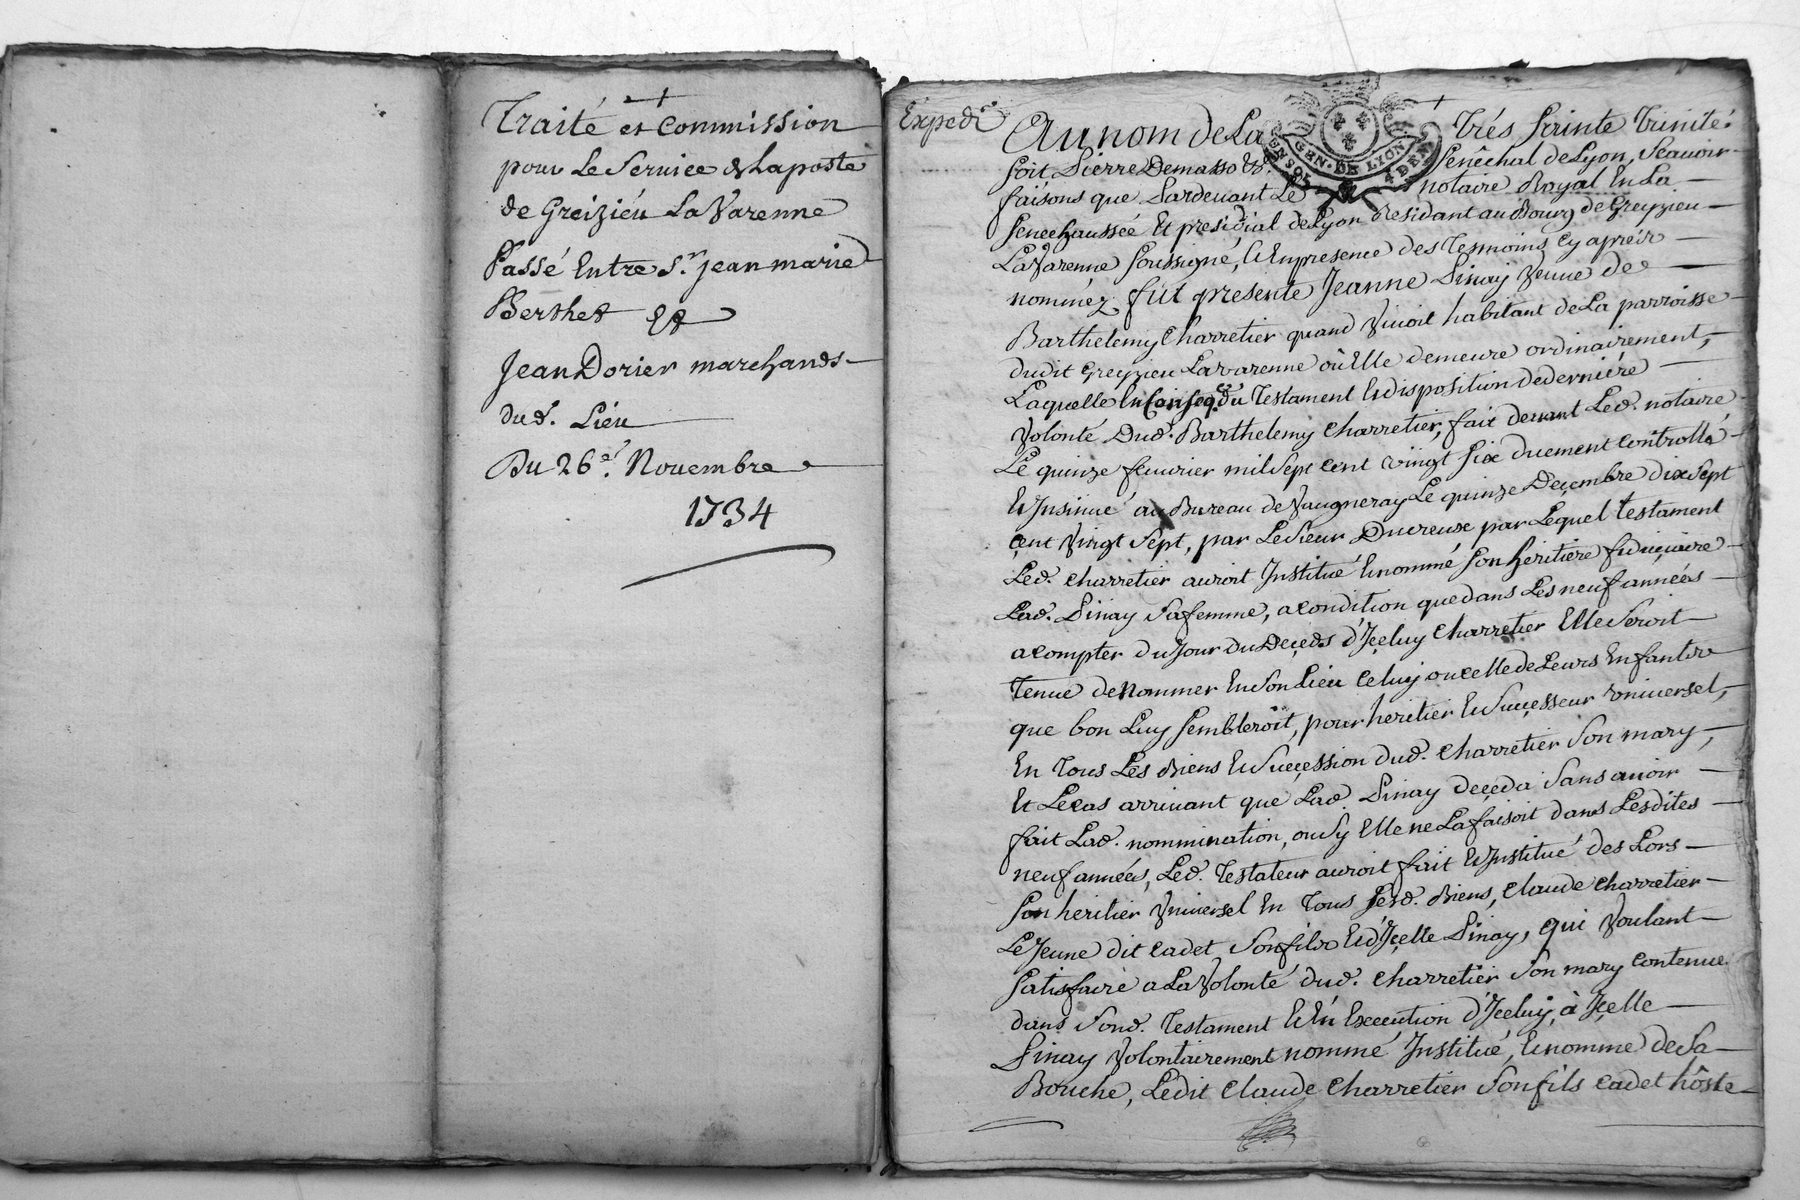 Traité et Commission
pour Le Service de Laposte
de Greizieu La Varenne
Passé Entre Sr. jean marie
Berthet Et
Jean Dorier marchands
dud. Lieu
Du 26e. Novembre
1734
Expedié
Au nom de La Trés Sainte Trinité:
soit Pierre Demasso &c. Senéchal de Lyon, Scavoir
faisons que Pardevant Le notaire Royal En La
Senechaussée Et presidial de Lyon Residant au Bourg de Greyzieu
La Varenne soussigné, & En presence des Tesmoins cy aprés
nommez fut presente Jeanne Pinay Veuve de
Barthelemy Charretier quand Vivoit habitant de La parroisse
dudit Greyzieu Lavarenne où Elle demeure ordinairement,
Laquelle En Conseq.ce du Testament Et disposition de derniére
Volonté Dud. Barthelemy Charretier, fait devant Led. notaire
Le quinze fevrier mil Sept cent vingt six duement Controllé
& Insinué au Bureau de Vaugneray Le quinze Decembre dix Sept
cent Vingt Sept, par Le Sieur Ducreux par Lequel Testament
Led. Charretier auroit Institué & nommé Son heritiere fiduciaire
Lad. Pinay Sa femme, a condition que dans Les neuf années
a compter du Jour du Deceds d'Iceluy Charretier Elle Seroit
Tenue de Nommer En Son Lieu Celuy ou celle de Leurs Enfants
que bon Luy Sembleroit, pour heritier & Successeur Universel,
En Tous Les Biens & Succession dud. Charretier Son mary,
Et Le cas arrivant que Lad Pinay deceda Sans avoir
fait Lad. nommination, ou Sy Elle ne La faisoit dans Lesdites
neuf années, Led. Testateur auroit fait & Institué des Lors
Son heritier Universel En Tous Sesd. Biens, Claude Charretier
Le Jeune dit Cadet Son fils & d'Icelle Pinay, qui Voulant
Satisfaire a La Volonté dud. Charretier Son mary Contenue
dans Sond. Testament & En Execution d'Iceluy, à Icelle
Pinay Volontairement nommé Institué, & nomme de Sa
Bouche, Ledit Claude Charretier Son fils Cadet hôste